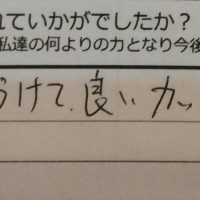 れていかがでしたか？
私達の何よりの力となり今後
うけて、良いカッ